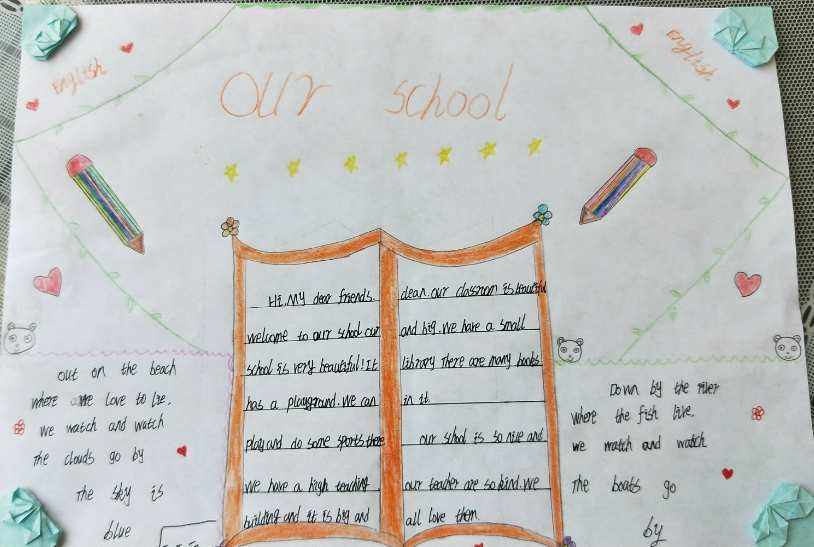 English
English
OUR school
Hi, My dear friends.
welcome to our school our
school is very beautiful! It
has a playground. We can
play and do some sports there
We have a high teaching
building and it is big and
clean. Our classroom is beautiful
and big. We have a small
library There are many books
in it.
Our school is so nice and
our teacher are so kind. We
all love them
Out on the beach
where we love to lie.
We watch and watch
the clouds go by
The sky is
blue
Down by the river
where the fish live.
We watch and watch
The boats go
by